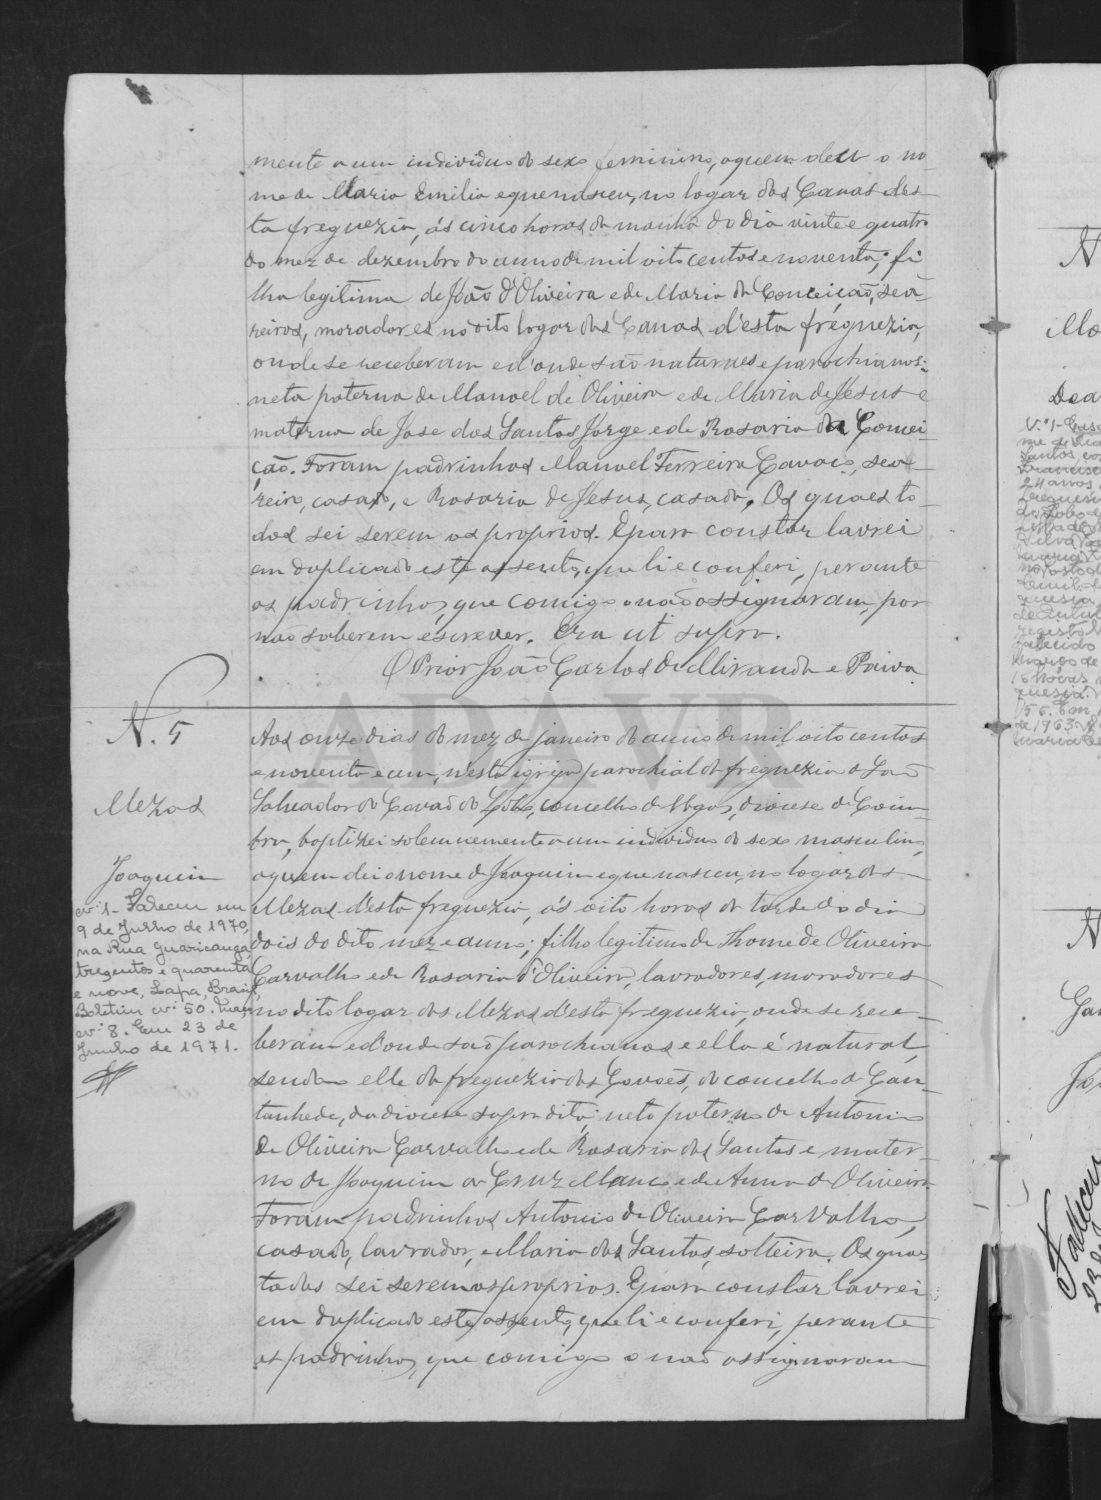 mente a um individuo do sexo feminino, a quem dei o no-
me de Maria Emilia e que nasceu, no logar das Cavadas des-
ta freguezia, ás cinco horas da manhã do dia vinte e quatro
do mez de dezembro do anno de mil oito centos e noventa; fi-
lha legitima de João d'Oliveira e de Maria da Conceição, sea-
reiros, moradores no dito logar das d'esta freguezia,
onde se receberam e d'onde são naturaes e parochianos:
neta paterna de Manoel de Oliveira e de Maria de Jesus e
materna de Jose dos Santos Jorge e de Rosaria da Concei-
ção. Foram padrinhos Manoel Ferreira sea-
reiro, casado, e Rosaria de Jesus, casada. Os quaes to-
dos sei serem os proprios. E para constar lavrei
em duplicado este assento, que li e conferi, perante
os padrinhos, que comigo o não assignaram, por
não saberem escrever. Era ut supra.
O Prior João Carlos de Miranda e Paiva
N. 5
Mezas
Joaquim
nº 1- Faleceu em
9 de Julho de 1970,
na Rua Guaricanga,
trezentos e quarenta
e nove, Lapa, Brasil,
Boletim nº 50.
nº 8. Em 23 de
Junho de 1971.
Aos onze dias do mez de janeiro do anno de mil oito centos
e noventa e um, n'esta igreja parochial da freguezia de São
Salvador do Covão do Lobo, concelho de Vagos, diocese de Coim-
bra, baptizei solemnemente a um individuo do sexo masculino,
a quem dei o nome de Joaquim e que nasceu, no logar das
Mezas d'esta freguezia, ás oito horas da tarde do dia
dois do dito mez e anno; filho legitimo de Thome de Oliveira
Carvalho e de Rosaria d'Oliveira, lavradores, moradores
no dito logar das Mezas d'esta freguezia, onde se rece-
beram e d'onde são parochianos e ella é natural,
sendo elle da freguezia dos Covões, do concelho de Can-
tanhede, da diocese supra dita; neto paterno de Antonio
de Oliveira Carvalho e de Rosaria dos Santos e mater-
no de Joaquim da Cruz Manco e de Anna de Oliveira.
Foram padrinhos Antonio de Oliveira Carvalho,
casado, lavrador, e Maria dos Santos, solteira. Os quaes
todos sei serem os proprios. E para constar lavrei
em duplicado este assento, que li e conferi, perante
os padrinhos, que comigo o não assignaram
ADAVR